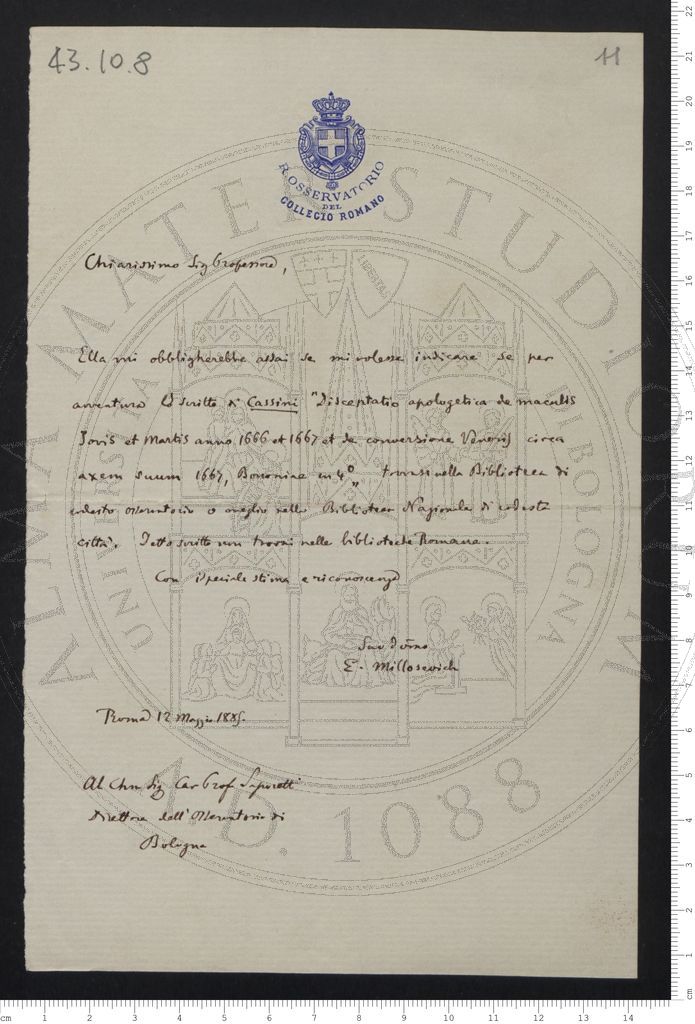 43.10.8
11
R. OSSERVATORIO
DEL
COLLEGIO ROMANO
Chiarissimo Sig Professore,
Ella mi obbligherebbe assai se mi volesse indicare se per
avventura lo scritto di Cassini "Disceptatio apologetica de maculis
Jovis et Martis anno 1666 et 1667 et de conversione Veneris circa
axem suum 1667, Bononiae in 4°„ trovasi nella Biblioteca di
codesto Osservatorio o meglio nella Biblioteca Nazionale di codesta
città. Detto scritto non trovasi nelle biblioteche Romane.
Con speciale stima e riconoscenza
Suo
E. Millosevich
Roma 12 Maggio 1885.
Al Sig Cav Prof Saporetti
Direttore dell'Osservatorio di
Bologna
ALMA MATER STUDIORUM
UNIVERSITÀ DI BOLOGNA
LIBERTAS
A.D. 1088
cm 1 2 3 4 5 6 7 8 9 10 11 12 13 14
cm 1 2 3 4 5 6 7 8 9 10 11 12 13 14 15 16 17 18 19 20 21 22